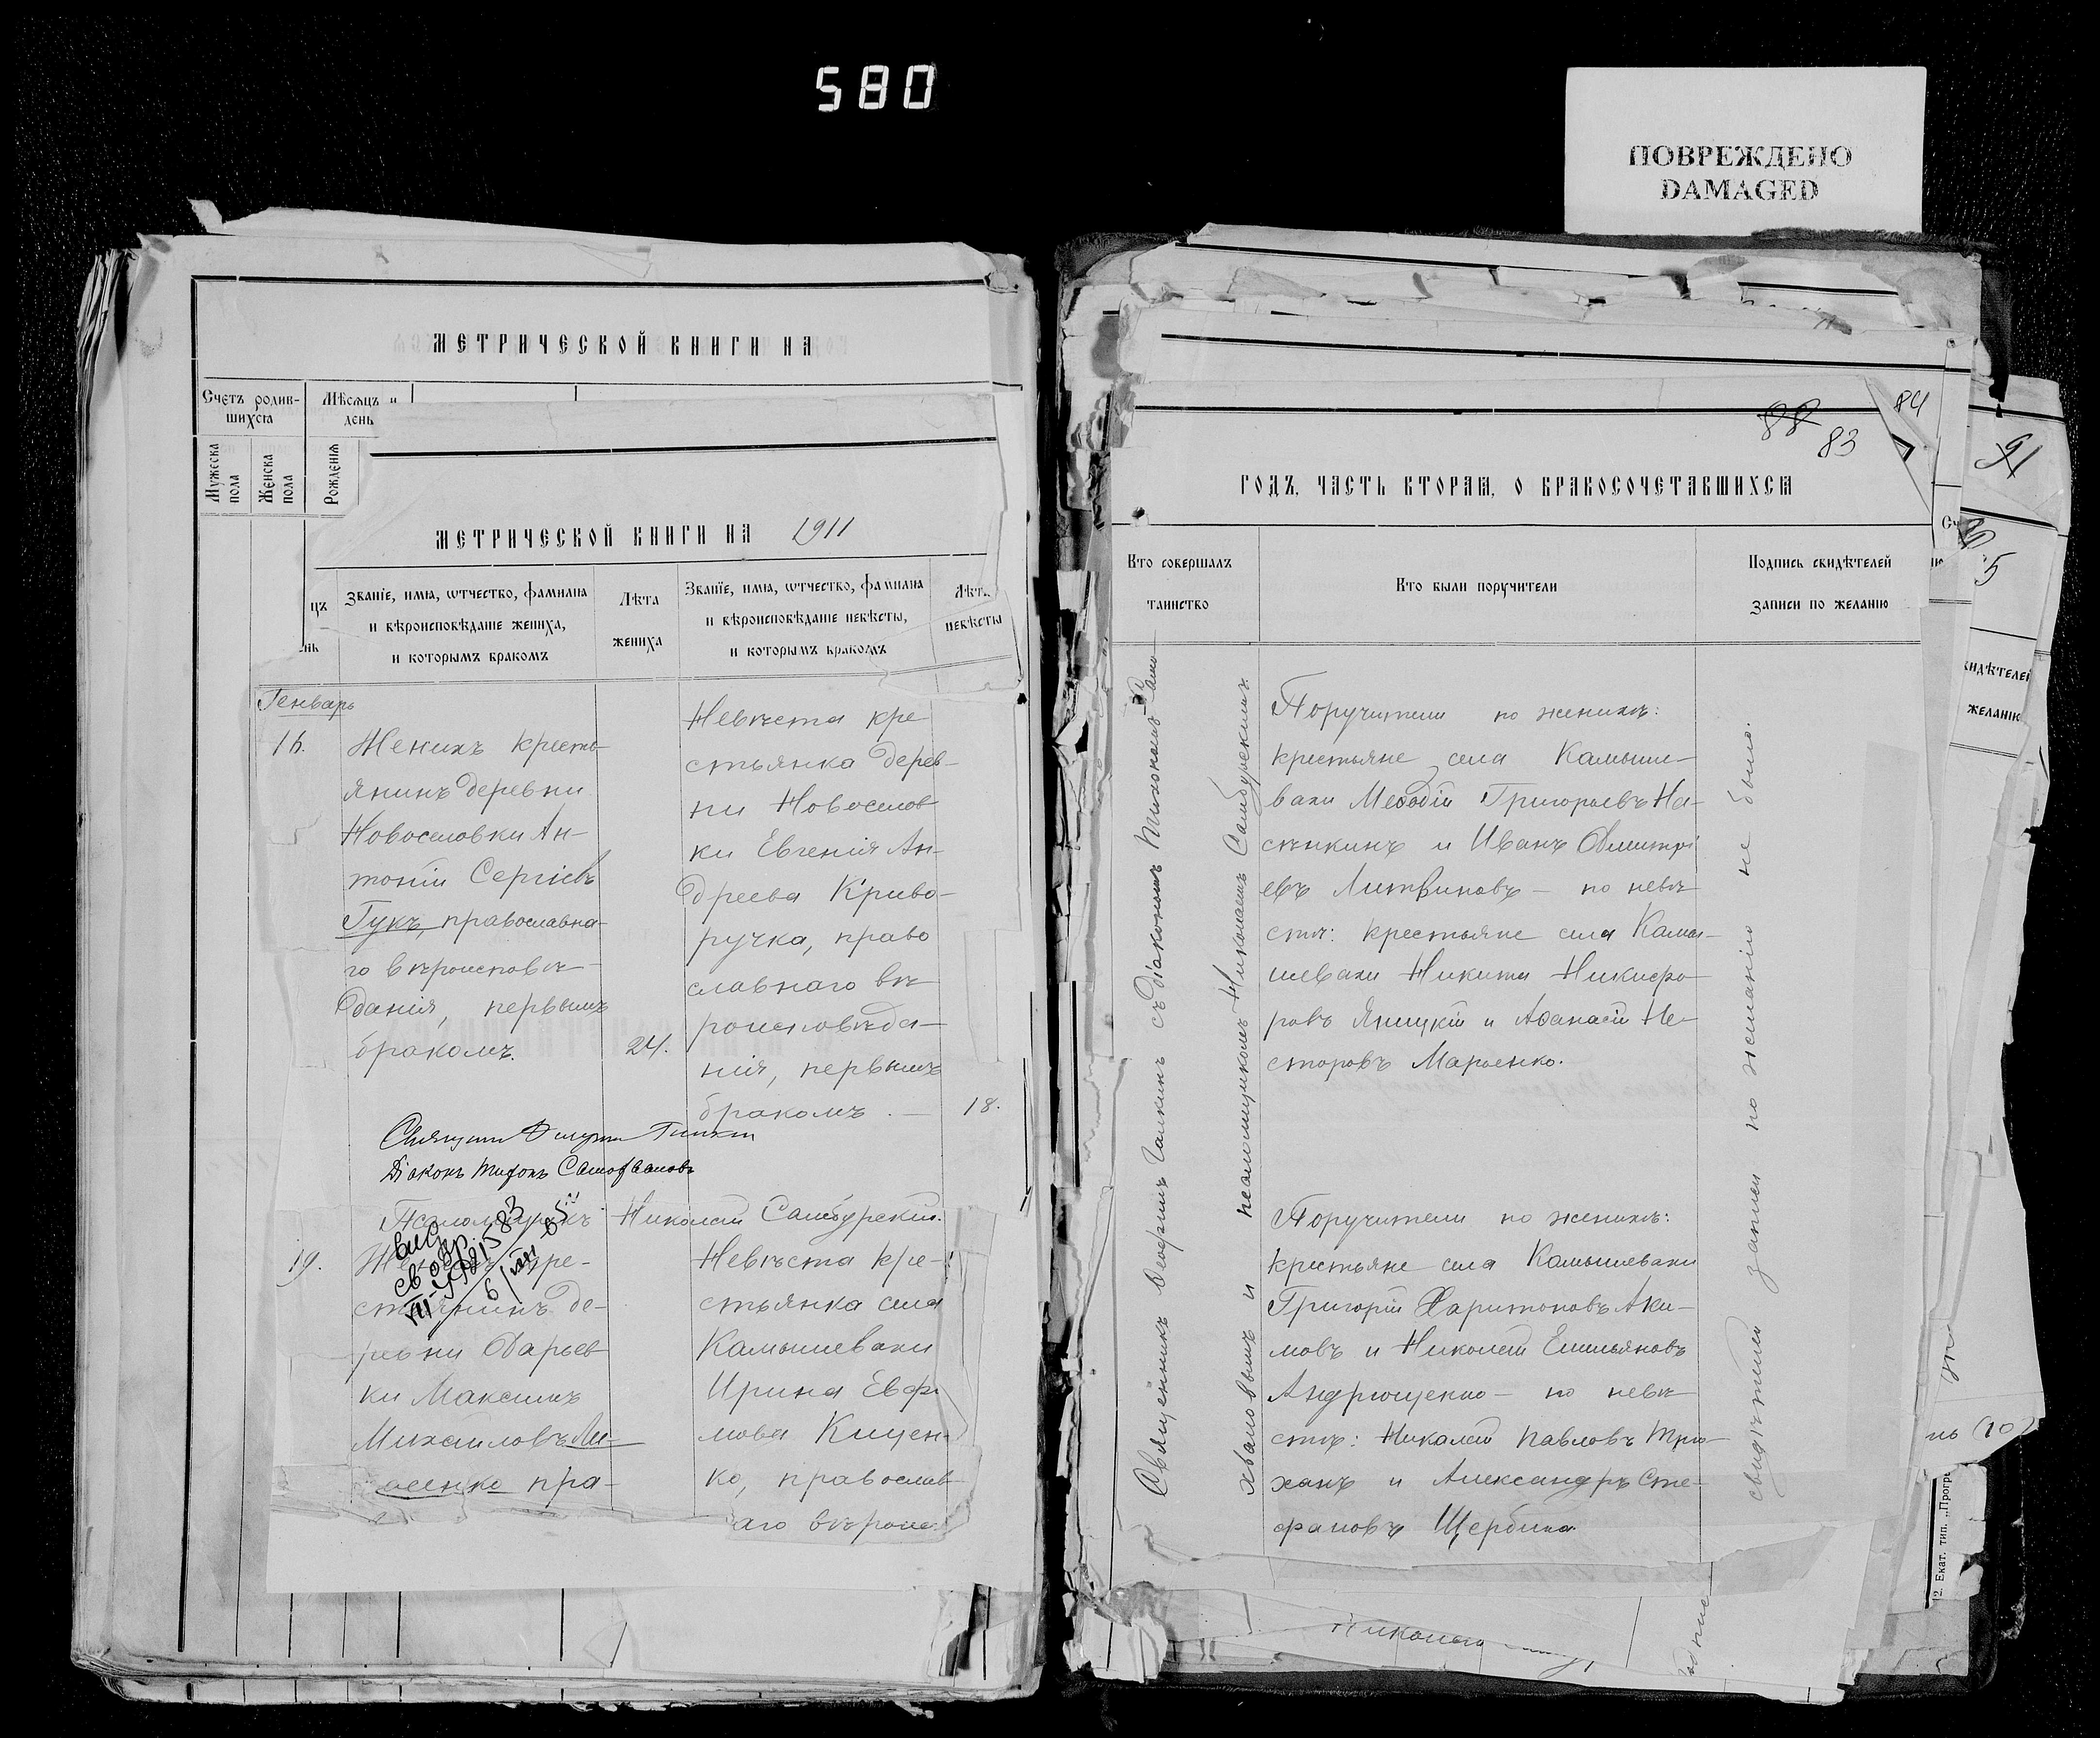 580
ПОВРЕЖДЕНО
DAMAGED
МЕТРИЧЕСКОЙ КНИГИ НА
Счетъ родив-
шихсѧ
Мѣсѧцъ и
день
Мужеска
пола
Женска
пола
Рожденіѧ
МЕТРИЧЕСКОЙ КНИГИ НА 1911
цъ
нь
Званіе, имѧ, ѡтчество, фамилиѧ
и вѣроисповѣданіе жениха,
и которымъ бракомъ
Лѣта
жениха
Званіе, имѧ, ѡтчество, фамилиѧ
и вѣроисповѣданіе невѣсты,
и которымъ бракомъ
Лѣта
невѣсты
Генварь
16.
Женихъ кресть-
янинъ деревни
Новоселовки Ан-
тоній Сергіевъ
Гукъ, православна-
го вѣроисповѣ-
данія, первымъ
бракомъ.
24.
Невѣста кре
стьянка дерев-
ни Новоселов
ки Евгенія Ан-
дреева Криво-
ручка, право
славнаго вѣ
роисповѣда-
нія, первымъ
бракомъ. —
18.
Діаконъ Тихонъ
Псаломщикъ Николай Самбурскій.
19.
Женихъ кре-
стьянинъ де-
ревни Дарьев
ки Максимъ
Михайловъ Ли-
сенко пра-
Невѣста кре-
стьянка села
Камышевахи
Ирина Евфи
мова Кищен-
ко, православ
аго вѣроис
88
83
84
91
ГОДЪ, ЧАСТЬ ВТОРАѦ, О БРАКОСОЧЕТАВШИХСѦ
Кто совершалъ
таинство
Кто были поручители
Подпись свидѣтелей
записи по желанію
Священникъ съ діакономъ Тихономъ Само
хваловымъ и псаломщикомъ Николаемъ Самбурскимъ.
Поручители по женихѣ:
крестьяне села Камыше-
вахи Меѳодій Григорьевъ На-
сѣнкинъ и Иванъ Дмитрі
евъ Литвиновъ — по невѣ
стѣ: крестьяне села Камы-
шевахи Никита Никифо-
ровъ Яницкій и Аѳанасій Не-
сторовъ Марченко.
Поручители по женихѣ:
крестьяне села Камышевахи
Григорій Харитоновъ Аки-
мовъ и Николай Емельяновъ
Андрющенко — по невѣ
стѣ: Николай Павловъ Три-
ханъ и Александръ Сте-
фановъ Щербина
свидѣтелей записи по желанію не было.
5
идѣтелей
желанію
2. Екат. тип. „Прогре